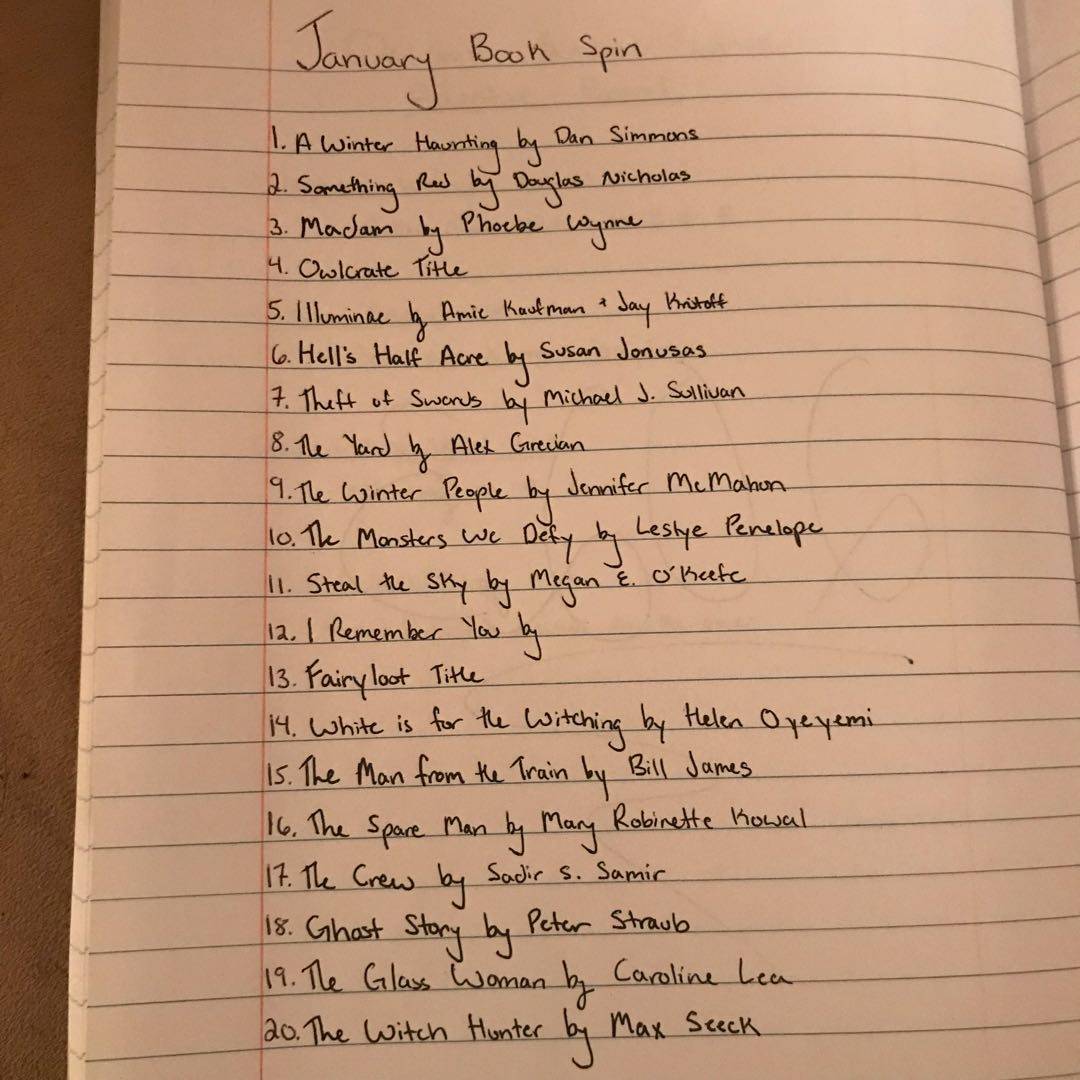 January Book Spin
1. A Winter Haunting by Dan Simmons
2. Something Red by Douglas Nicholas
3. Madam by Phoebe Wynne
4. Owlcrate Title
5. Illuminae by Amie Kaufman + Jay Kristoff
6. Hell's Half Acre by Susan Jonusas
7. Theft of Swords by Michael J. Sullivan
8. The Yard by Alex Grecian
9. The Winter People by Jennifer McMahon
10. The Monsters We Defy by Leslye Penelope
11. Steal the Sky by Megan E. O'Keefe
12. I Remember You by
13. Fairyloot Title
14. White is for the Witching by Helen Oyeyemi
15. The Man from the Train by Bill James
16. The Spare Man by Mary Robinette Kowal
17. The Crew by Sadir S. Samir
18. Ghost Story by Peter Straub
19. The Glass Woman by Caroline Lea
20. The Witch Hunter by Max Seeck